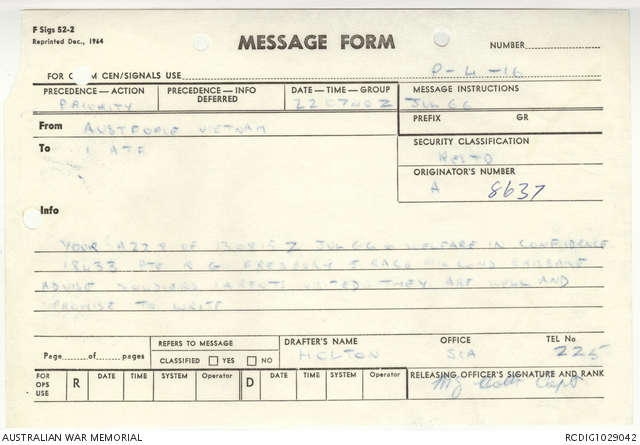 F Sigs 52-2
Reprinted Dec., 1964
MESSAGE FORM
NUMBER
FOR COMM CEN/SIGNALS USE P-4-16
PRECEDENCE — ACTION PRECEDENCE — INFO DATE — TIME — GROUP MESSAGE INSTRUCTIONS
PRIORITY DEFERRED 220740Z JUL 66
PREFIX GR
From AUSTFORCE VIETNAM
To 1 ATF
SECURITY CLASSIFICATION
RESTD
ORIGINATOR'S NUMBER
A 8637
Info
YOUR A228 OF 130815Z JUL 66 WELFARE IN CONFIDENCE
PTE R G 5 RAR
ADVISE SOLDIERS PARENTS VISITED THEY ARE WELL AND
PROMISE TO WRITE
Page of pages
REFERS TO MESSAGE
CLASSIFIED YES NO
DRAFTER'S NAME OFFICE TEL No
HOLTON 225
FOR OPS USE R DATE TIME SYSTEM Operator D DATE TIME SYSTEM Operator
RELEASING OFFICER'S SIGNATURE AND RANK
Capt
AUSTRALIAN WAR MEMORIAL RCDIG1029042